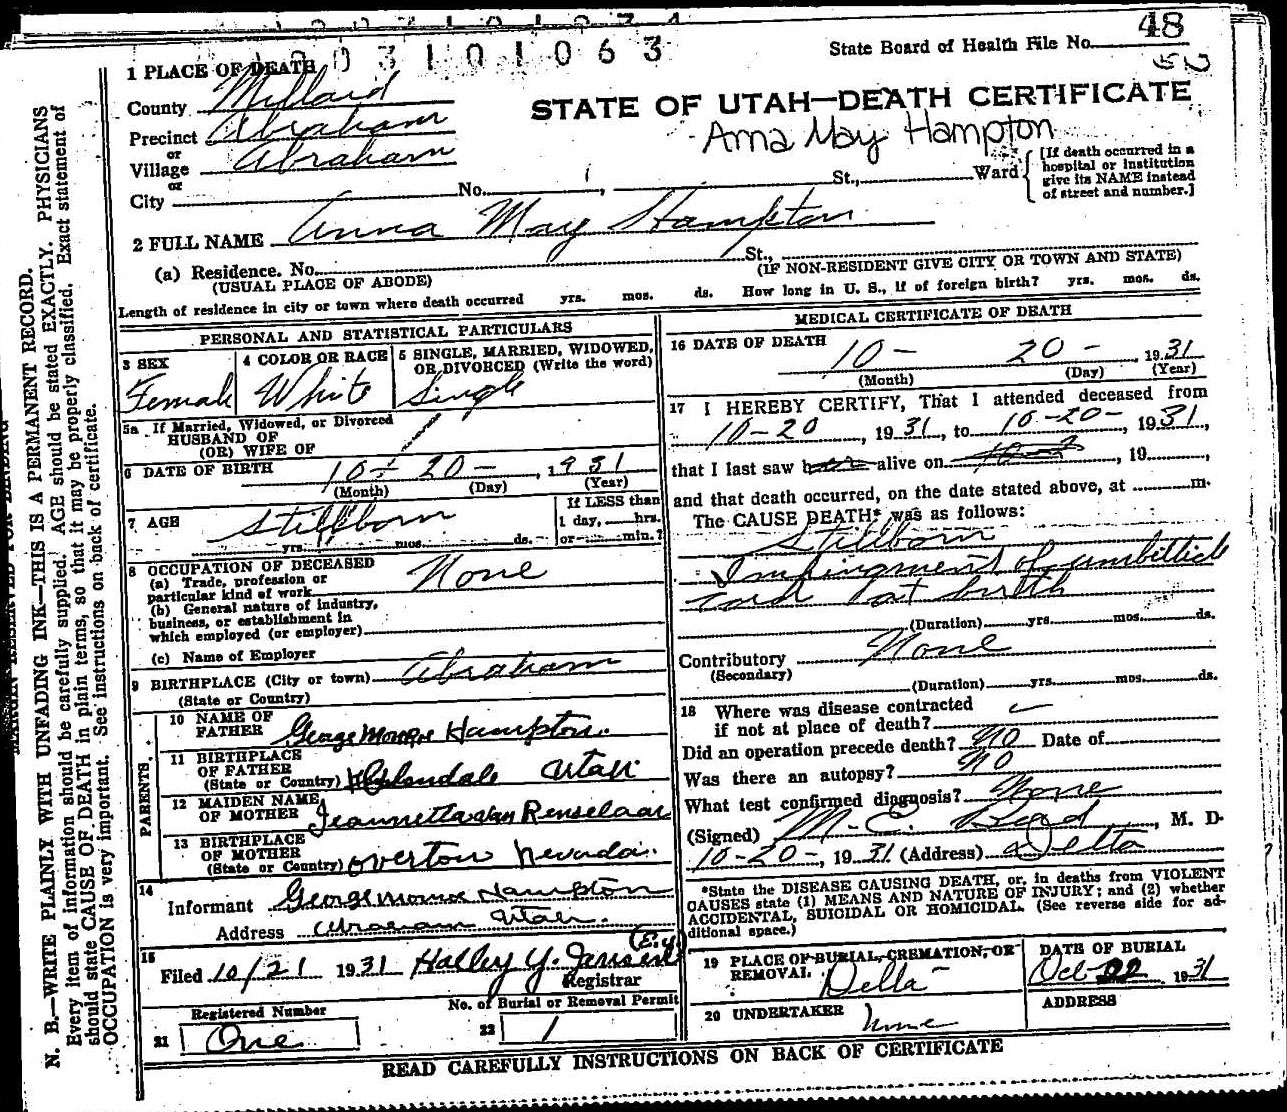 03101063
State Board of Health File No. 48
52
1 PLACE OF DEATH
County Millard
STATE OF UTAH—DEATH CERTIFICATE
Precinct Abraham
Anna May Hampton
or
Village Abraham
or
City No. , St., Ward
[If death occurred in a hospital or institution give its NAME instead of street and number.]
2 FULL NAME Anna May Hampton
(a) Residence. No. St.,
(USUAL PLACE OF ABODE) (IF NON-RESIDENT GIVE CITY OR TOWN AND STATE)
Length of residence in city or town where death occurred yrs. mos. ds. How long in U. S., if of foreign birth? yrs. mos. ds.
PERSONAL AND STATISTICAL PARTICULARS
3 SEX
Female
4 COLOR OR RACE
White
5 SINGLE, MARRIED, WIDOWED, OR DIVORCED (Write the word)
Single
5a If Married, Widowed, or Divorced
HUSBAND OF
(OR) WIFE OF
6 DATE OF BIRTH 10 - 20 - , 1931
(Month) (Day) (Year)
7 AGE Stillborn
yrs. mos. ds.
If LESS than
1 day, hrs.
or min.?
8 OCCUPATION OF DECEASED None
(a) Trade, profession or
particular kind of work
(b) General nature of industry,
business, or establishment in
which employed (or employer)
(c) Name of Employer
9 BIRTHPLACE (City or town) Abraham
(State or Country)
PARENTS
10 NAME OF FATHER George Monroe Hampton.
11 BIRTHPLACE OF FATHER
(State or Country) Utah
12 MAIDEN NAME OF MOTHER Jeannetta Van Renselaar
13 BIRTHPLACE OF MOTHER
(State or Country) Overton Nevada.
14
Informant George Monroe Hampton
Address Abraham Utah.
15
Filed 10/21 1931 Halley Y. Jensen
Registrar
Registered Number
21 One
No. of Burial or Removal Permit
22 1
MEDICAL CERTIFICATE OF DEATH
16 DATE OF DEATH 10 - 20 - , 1931
(Month) (Day) (Year)
17 I HEREBY CERTIFY, That I attended deceased from
10-20 , 1931, to 10-20- , 1931,
that I last saw h alive on , 19 ,
and that death occurred, on the date stated above, at m.
The CAUSE DEATH* was as follows:
Stillborn
Impingment of umbilical
cord at birth
(Duration) yrs. mos. ds.
Contributory None
(Secondary)
(Duration) yrs. mos. ds.
18 Where was disease contracted
if not at place of death?
Did an operation precede death? No Date of
Was there an autopsy? No
What test confirmed diagnosis? None
(Signed) M. E. Bird , M. D.
10-20-, 1931 (Address) Delta
*State the DISEASE CAUSING DEATH, or, in deaths from VIOLENT
CAUSES state (1) MEANS AND NATURE OF INJURY; and (2) whether
ACCIDENTAL, SUICIDAL OR HOMICIDAL. (See reverse side for additional space.)
19 PLACE OF BURIAL, CREMATION, OR REMOVAL
Delta
DATE OF BURIAL
Oct 22 , 1931
20 UNDERTAKER None
ADDRESS
READ CAREFULLY INSTRUCTIONS ON BACK OF CERTIFICATE
N. B.—WRITE PLAINLY WITH UNFADING INK—THIS IS A PERMANENT RECORD.
Every item of information should be carefully supplied. AGE should be stated EXACTLY. PHYSICIANS
should state CAUSE OF DEATH in plain terms, so that it may be properly classified. Exact statement of
OCCUPATION is very important. See instructions on back of certificate.